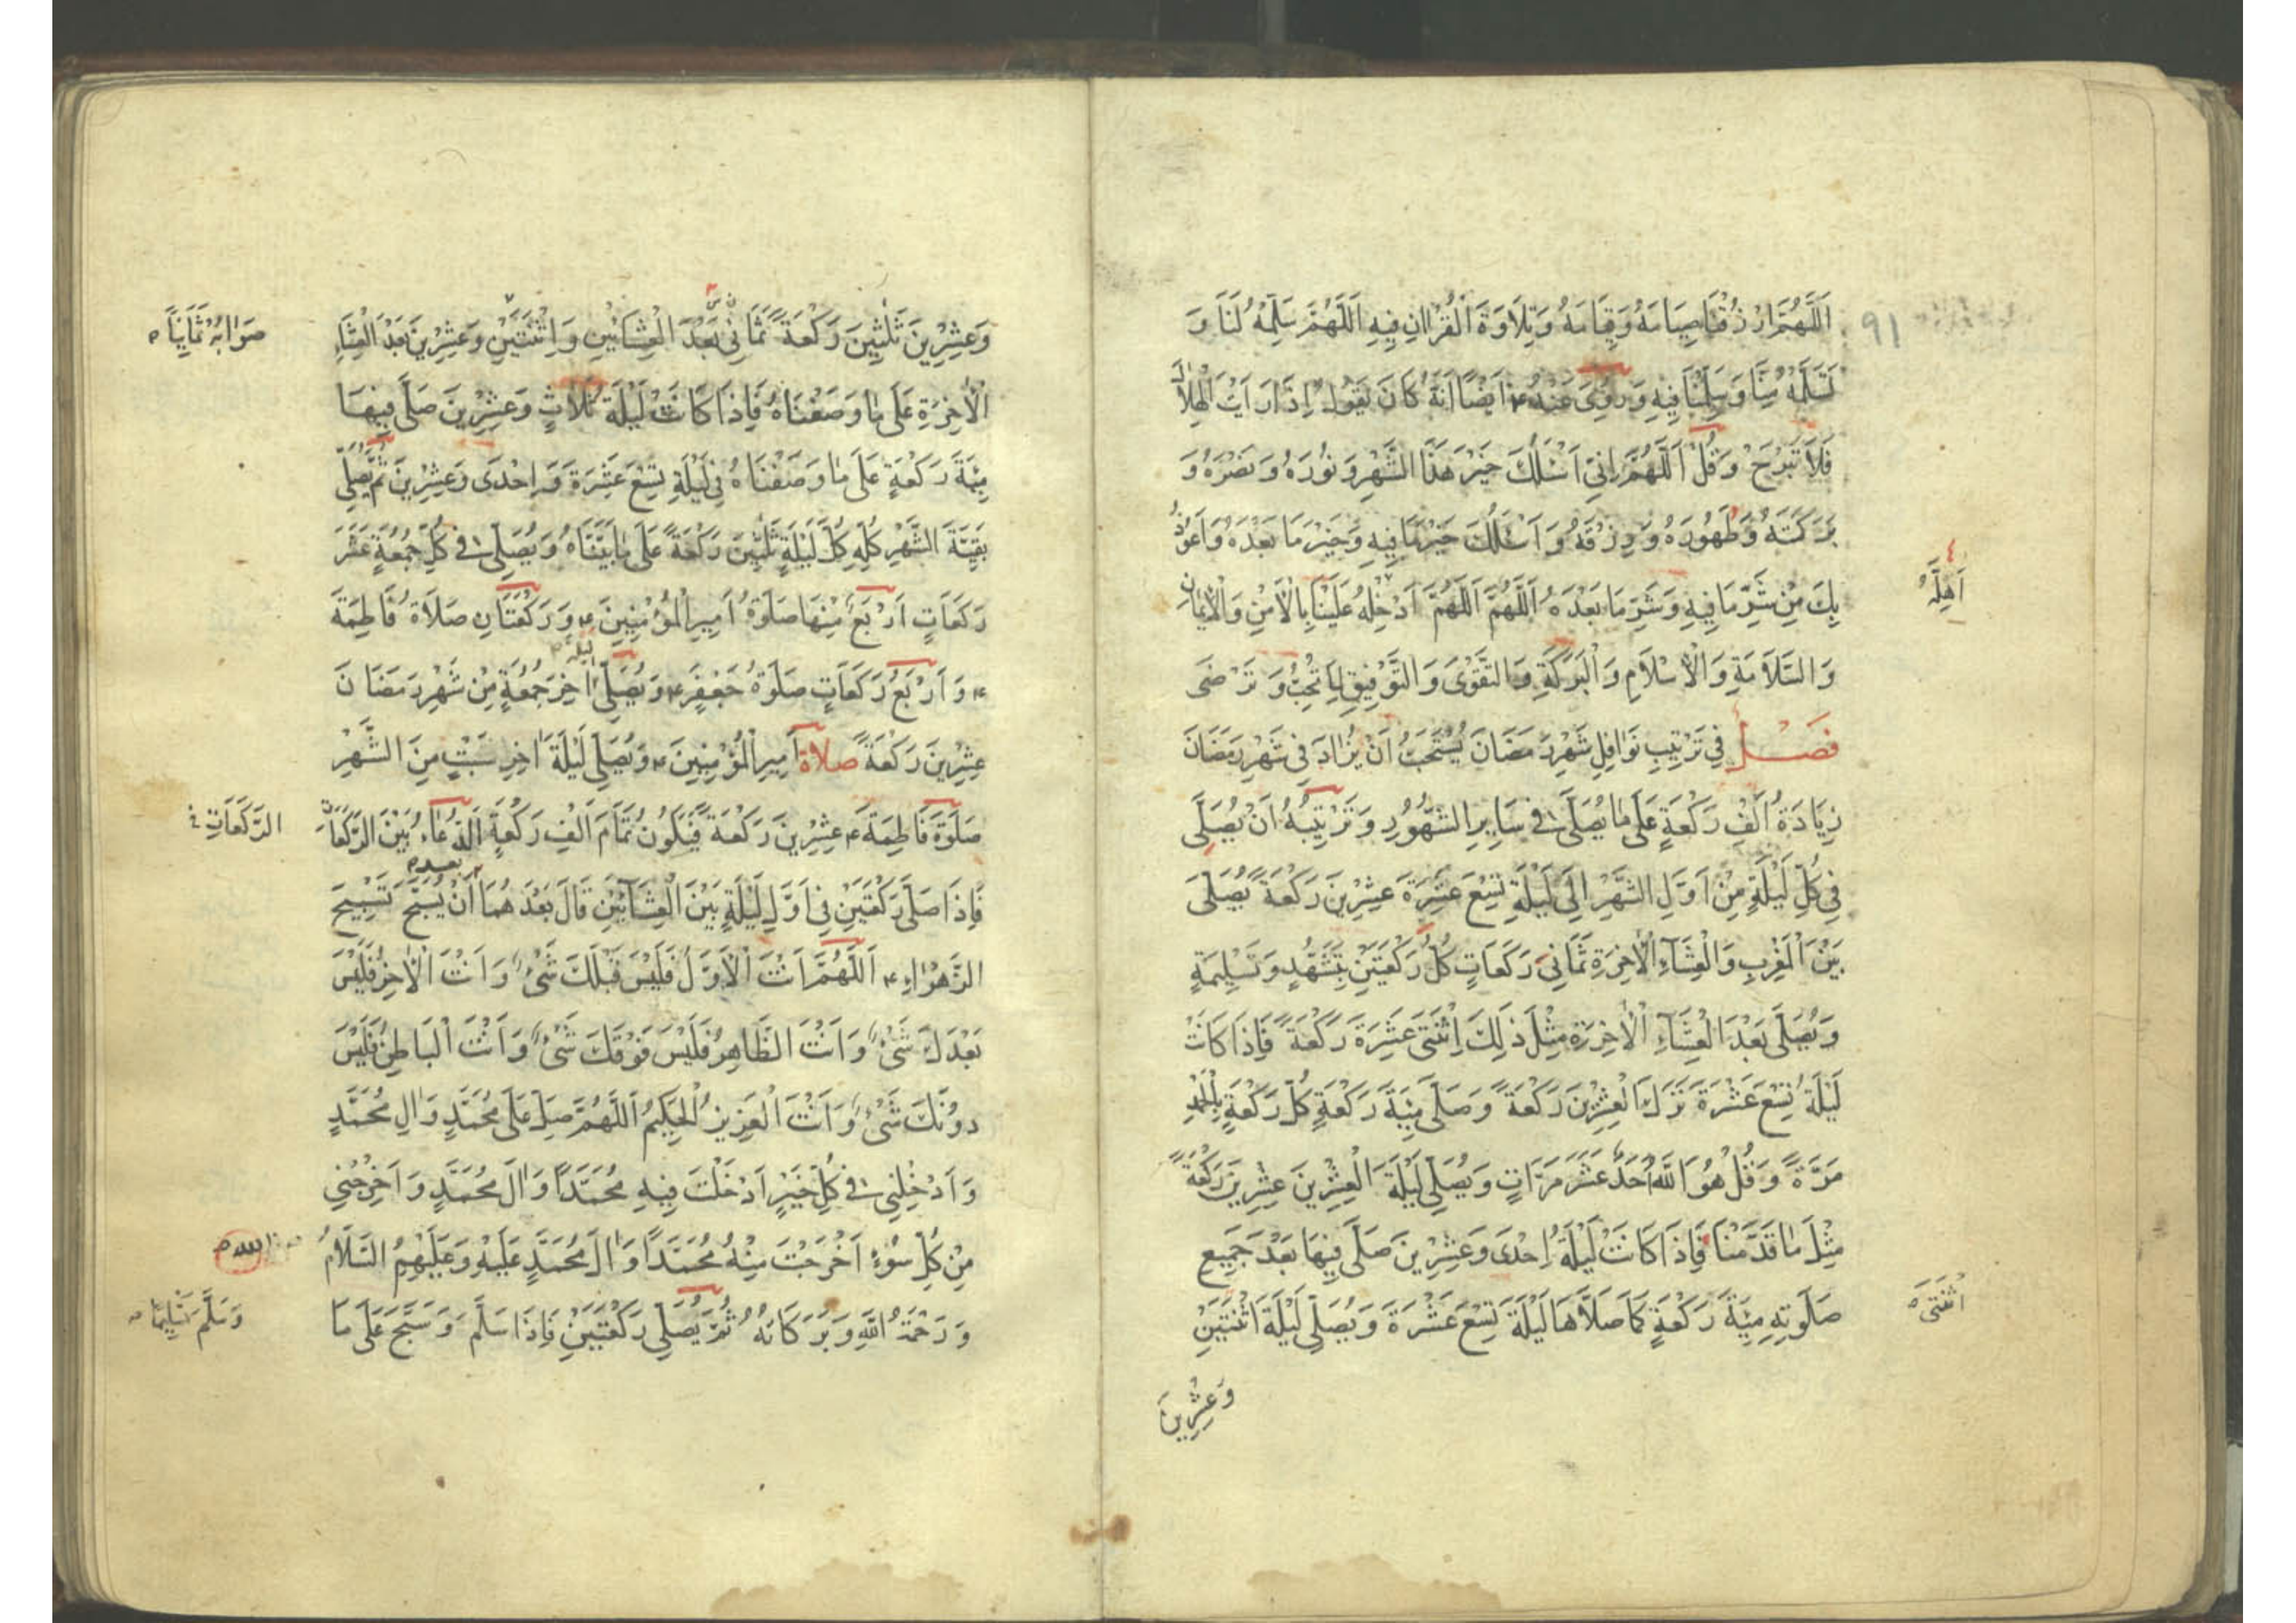 اَللَّهُمَّ ارْزُقْنَا صِيَامَهُ وَقِيَامَهُ وَتِلَاوَةَ الْقُرْاٰنِ فِيهِ اَللَّهُمَّ سَلِّمْهُ لَنَا وَ
٩١
تَسَلَّمْهُ مِنَّا وَسَلِّمْنَا فِيهِ وَرُوِيَ عَنْهُ ۴ اَيْضًا اَنَّهُ كَانَ يَقُولُ اِذَا رَاَيْتَ الْهِلَالَ
فَلَا تَبْرَحْ وَقُلْ اَللَّهُمَّ اِنِّي اَسْئَلُكَ خَيْرَ هَذَا الشَّهْرِ وَنُورَهُ وَنَصْرَهُ وَ
بَرَكَتَهُ وَطَهُورَهُ وَرِزْقَهُ وَاَسْئَلُكَ خَيْرَ مَا فِيهِ وَخَيْرَ مَا بَعْدَهُ وَاَعُوذُ
بِكَ مِنْ شَرِّ مَا فِيهِ وَشَرِّ مَا بَعْدَهُ اَللَّهُمَّ اَللَّهُمَّ اَدْخِلْهُ عَلَيْنَا بِالْاَمْنِ وَالْاِيمَانِ
اَهِلَّهُ
وَالسَّلَامَةِ وَالْاِسْلَامِ وَالْبَرَكَةِ وَالتَّقْوٰى وَالتَّوْفِيقِ لِمَا تُحِبُّ وَتَرْضٰى
فَصْلٌ فِي تَرْتِيبِ نَوَافِلِ شَهْرِ رَمَضَانَ يُسْتَحَبُّ اَنْ يُزَادَ فِي شَهْرِ رَمَضَانَ
زِيَادَةُ اَلْفِ رَكْعَةٍ عَلَى مَا يُصَلَّى فِي سَايِرِ الشُّهُورِ وَتَرْتِيبُهُ اَنْ يُصَلَّى
فِي كُلِّ لَيْلَةٍ مِنْ اَوَّلِ الشَّهْرِ اِلَى لَيْلَةِ تِسْعَ عَشِرَةَ عِشْرِينَ رَكْعَةً يُصَلَّى
بَيْنَ الْمَغْرِبِ وَالْعِشَاءِ الْاٰخِرَةِ ثَمَانِيَ رَكَعَاتٍ كُلُّ رَكْعَتَيْنِ بِتَشَهُّدٍ وَتَسْلِيمَةٍ
وَيُصَلَّى بَعْدَ الْعِشَاءِ الْاٰخِرَةِ مِثْلَ ذٰلِكَ اِثْنَتَى عَشِرَةَ رَكْعَةً فَاِذَا كَانَتْ
لَيْلَةُ تِسْعَ عَشْرَةَ تَرَكَ الْعِشْرِينَ رَكْعَةً وَصَلَّى مِئَةَ رَكْعَةٍ كُلَّ رَكْعَةٍ بِالْحَمْدِ
مَرَّةً وَقُلْ هُوَ اللهُ اَحَدٌ عَشَرَ مَرَّاتٍ وَيُصَلِّي لَيْلَةَ الْعِشْرِينَ عِشْرِينَ رَكْعَةً
مِثْلَ مَا قَدَّمْنَا فَاِذَا كَانَتْ لَيْلَةُ اِحْدَى وَعِشْرِينَ صَلَّى فِيهَا بَعْدَ جَمِيعِ
صَلَوتِهِ مِئَةَ رَكْعَةٍ كَمَا صَلَّاهَا لَيْلَةَ تِسْعَ عَشْرَةَ وَيُصَلِّي لَيْلَةَ اثْنَتَيْنِ
اثْنَتَى
وَعِشْرِينَ
وَعِشْرِينَ ثَلٰثِينَ رَكْعَةً ثَمَانِيَ بَعْدَ الْعِشَائَيْنِ وَاِثْنَتَيْنِ وَعِشْرِينَ بَعْدَ الْعِشَاءِ
صَوَابُهُ ثَمَانِيًا
الْاٰخِرَةِ عَلَى مَا وَصَفْنَاهُ فَاِذَا كَانَتْ لَيْلَةُ ثَلَاثٍ وَعِشْرِينَ صَلَّى فِيهَا
مِئَةَ رَكْعَةٍ عَلَى مَا وَصَفْنَاهُ فِي لَيْلَةِ تِسْعَ عَشَرَةَ وَاِحْدَى وَعِشْرِينَ ثُمَّ يُصَلِّي
بَقِيَّةَ الشَّهْرِ كُلِّهِ كُلَّ لَيْلَةٍ ثَلٰثِينَ رَكْعَةً عَلَى مَا بَيَّنَّاهُ وَيُصَلِّي فِي كُلِّ جُمُعَةٍ عَشَرَ
رَكَعَاتٍ اَرْبَعٌ مِنْهَا صَلَوةُ اَمِيرِ الْمُؤْمِنِينَ ۴ وَرَكْعَتَانِ صَلَاةُ فَاطِمَةَ
لَيْلَةَ
۴ وَاَرْبَعُ رَكَعَاتٍ صَلَوةُ جَعْفَرٍ ۴ وَيُصَلِّي اٰخِرَ جُمُعَةٍ مِنْ شَهْرِ رَمَضَانَ
عِشْرِينَ رَكْعَةً صلاة اَمِيرِ الْمُؤْمِنِينَ ۴ وَيُصَلِّي لَيْلَةَ اٰخِرِ سَبْتٍ مِنَ الشَّهْرِ
صَلَوةَ فَاطِمَةَ ۴ عِشْرِينَ رَكْعَةً فَيَكُونُ تَمَامَ اَلْفِ رَكْعَةٍ الدُّعَاءُ بَيْنَ الرَّكَعَاتِ
الرَّكَعَاتِ
بعده
فَاِذَا صَلَّى رَكْعَتَيْنِ فِي اَوَّلِ لَيْلَةٍ بَيْنَ الْعِشَائَيْنِ قَالَ بَعْدَهُمَا اَنْ يُسَبِّحَ تَسْبِيحَ
الزَّهْرَاءِ ۴ اَللَّهُمَّ اَنْتَ الْاَوَّلُ فَلَيْسَ قَبْلَكَ شَيْءٌ وَاَنْتَ الْاٰخِرُ فَلَيْسَ
بَعْدَكَ شَيْءٌ وَاَنْتَ الظَّاهِرُ فَلَيْسَ فَوْقَكَ شَيْءٌ وَاَنْتَ الْبَاطِنُ فَلَيْسَ
دُونَكَ شَيْءٌ وَاَنْتَ الْعَزِيزُ الْحَكِيمُ اَللَّهُمَّ صَلِّ عَلَى مُحَمَّدٍ وَاٰلِ مُحَمَّدٍ
وَاَدْخِلْنِي فِي كُلِّ خَيْرٍ اَدْخَلْتَ فِيهِ مُحَمَّدًا وَاٰلَ مُحَمَّدٍ وَاَخْرِجْنِي
مِنْ كُلِّ سُوْءٍ اَخْرَجْتَ مِنْهُ مُحَمَّدًا وَاٰلَ مُحَمَّدٍ عَلَيْهِ وَعَلَيْهِمُ السَّلَامُ
الله
وَرَحْمَةُ اللهِ وَبَرَكَاتُهُ ثُمَّ يُصَلِّي رَكْعَتَيْنِ فَاِذَا سَلَّمَ وَسَبَّحَ عَلَى مَا
وَسَلَّمَ تَسْلِيمًا